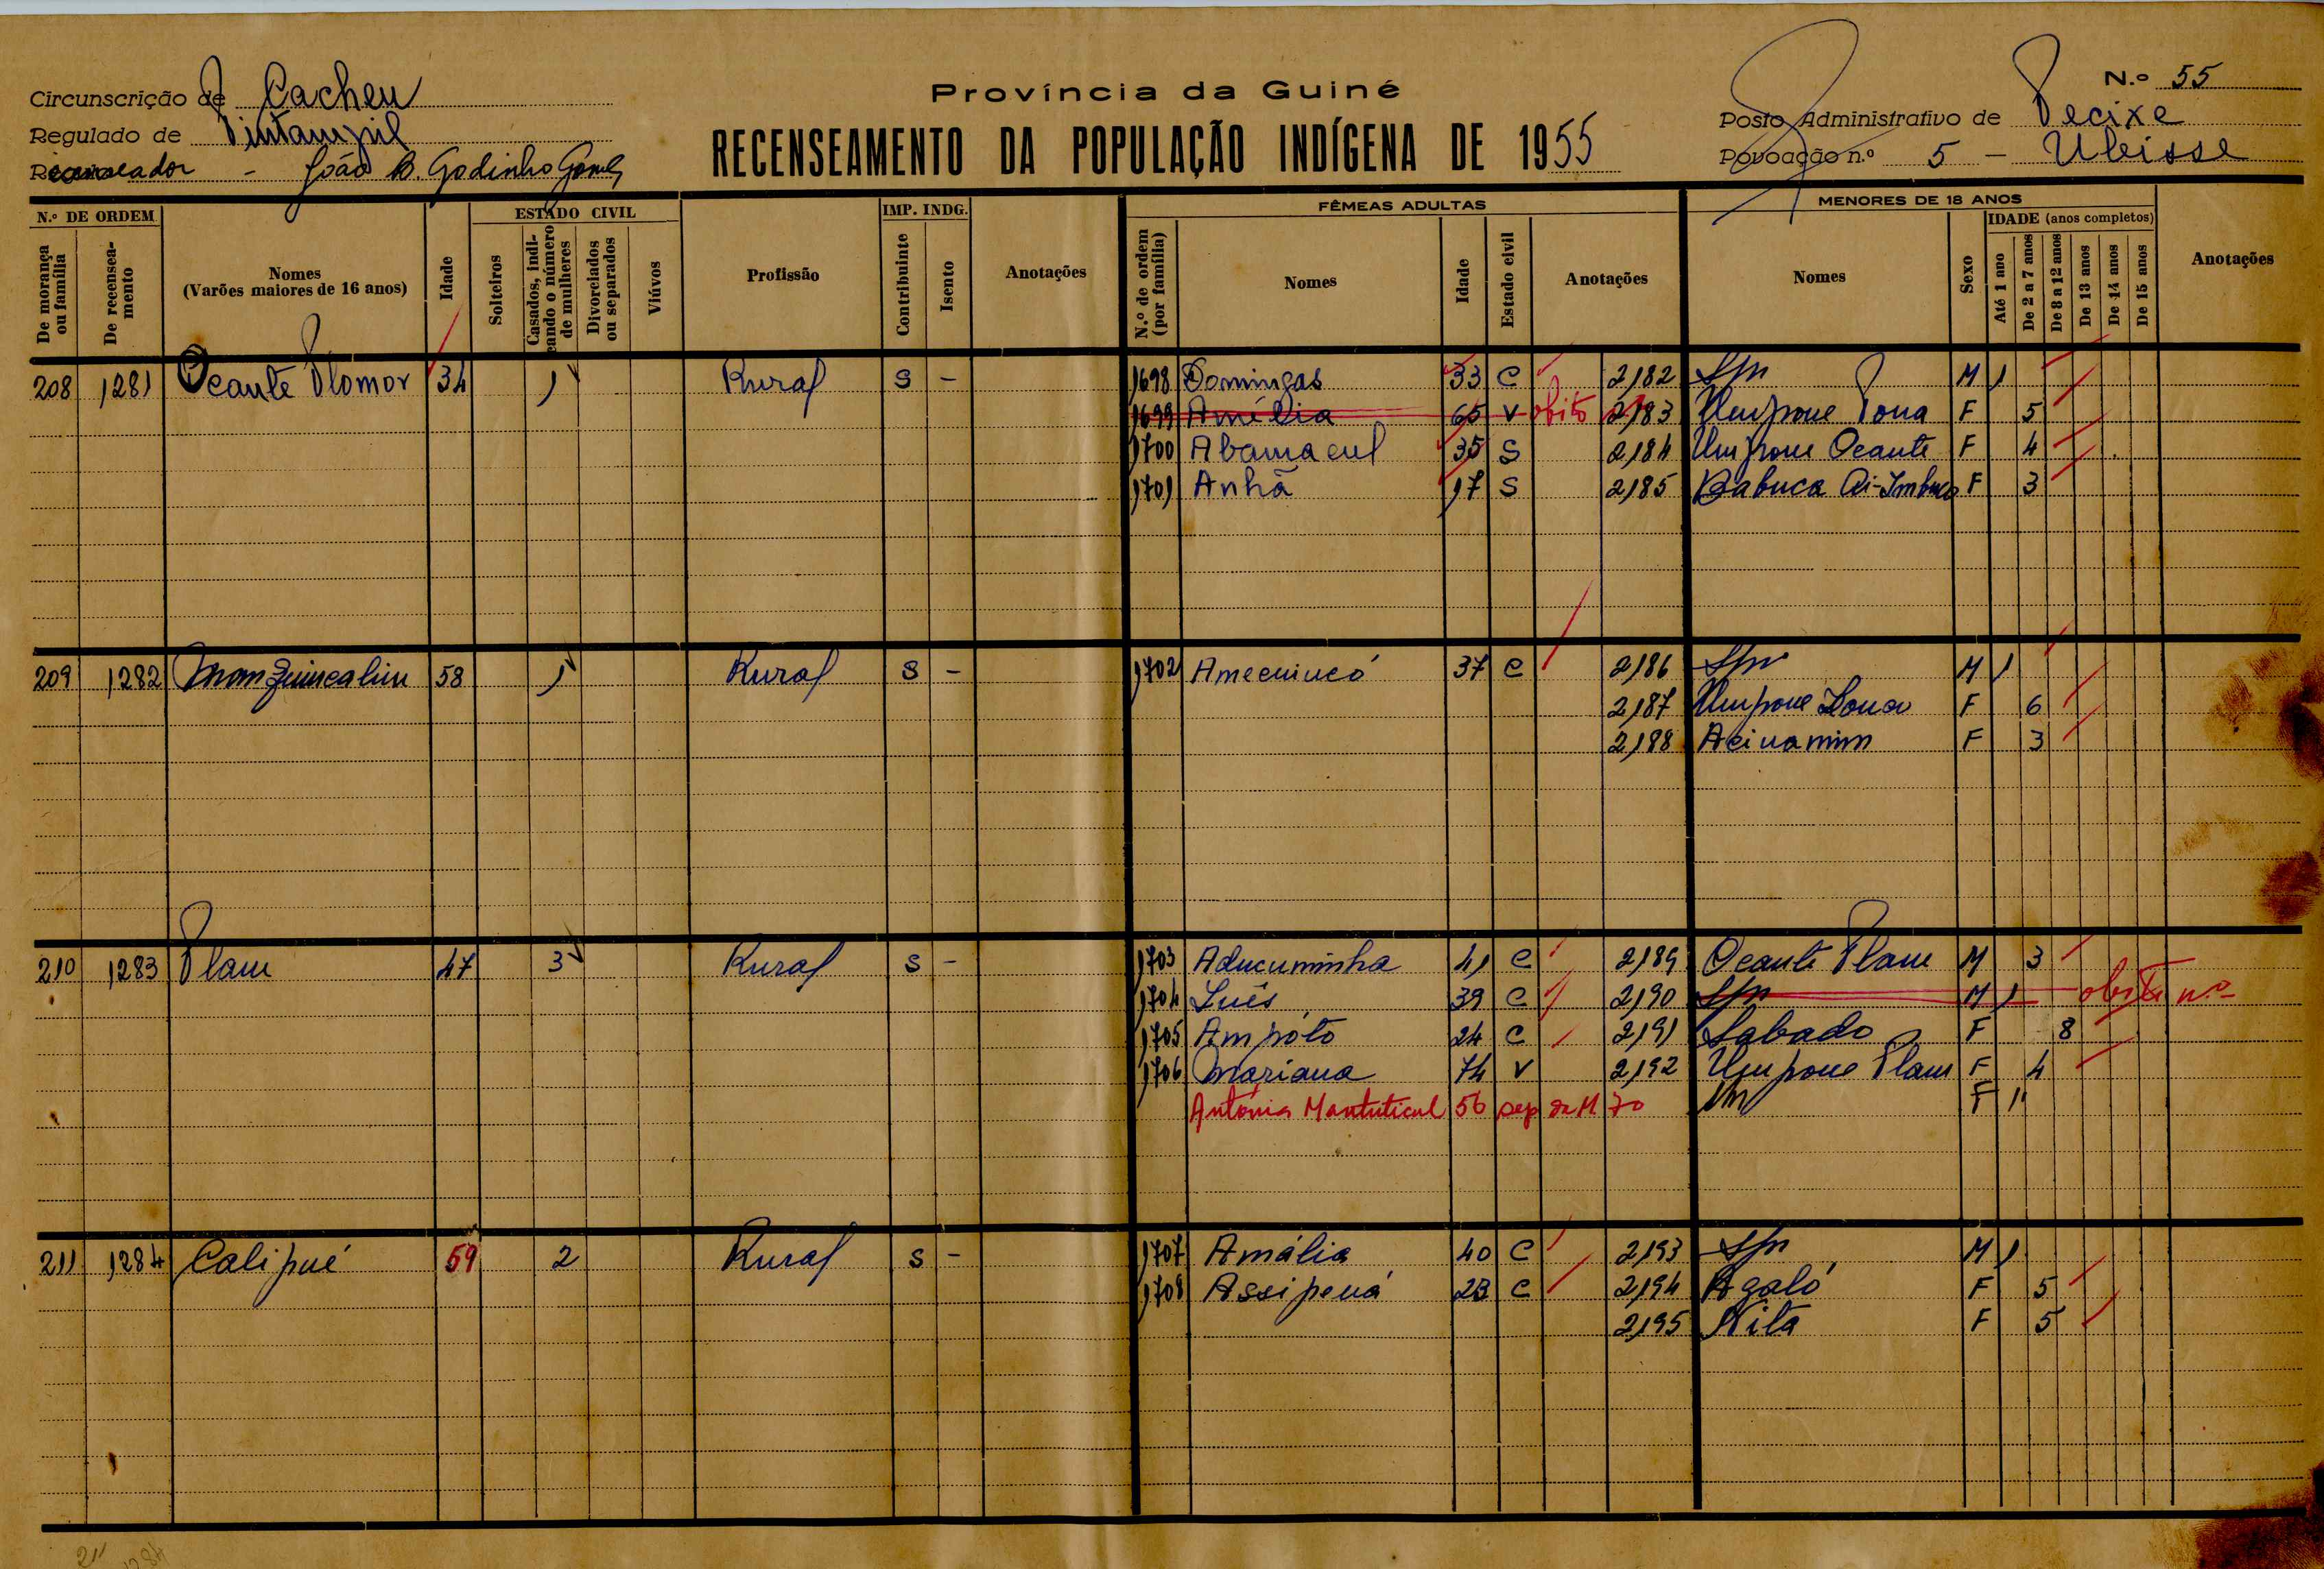 Província da Guiné
N.º 55
Circunscrição de Cacheu
Posto Administrativo de Pecixe
Regulado de Pintampil
RECENSEAMENTO DA POPULAÇÃO INDÍGENA DE 1955
Povoação n.º 5 - Ubisse
Recenseador - João B. Godinho Gomes
N.º DE ORDEM
De morança ou família
De recenseamento
Nomes
(Varões maiores de 16 anos)
Idade
ESTADO CIVIL
Solteiros
Casados, indicando o número de mulheres
Divorciados ou separados
Viúvos
Profissão
IMP. INDG.
Contribuinte
Isento
Anotações
FÊMEAS ADULTAS
N.º de ordem (por família)
Nomes
Idade
Estado civil
Anotações
MENORES DE 18 ANOS
Nomes
Sexo
IDADE (anos completos)
Até 1 ano
De 2 a 7 anos
De 8 a 12 anos
De 13 anos
De 14 anos
De 15 anos
Anotações
208 1281 Ocante Plomor 34 1 Rural S - 1698 Domingas 33 C 2182 Spn M 1
1699 Amélia 65 V obito 2183 Umpone Pona F 5
1700 Abamacul 35 S 2184 Umpone Ocante F 4
1701 Anhã 17 S 2185 Babuca F 3
209 1282 58 1 Rural S - 1702 37 C 2186 Spn M 1
2187 Umpone F 6
2188 Acinamim F 3
210 1283 Plam 47 3 Rural S - 1703 Aducuminha 41 C 2189 Ocante Plam M 3
1704 Luês 39 C 2190 Spn M 1 obito n.º
1705 Ampóto 24 C 2191 Sabado F 8
1706 Mariana 74 V 2192 Umpone Plam F 4
Antónia Mantuticul 56 sep da M 70 F 1
211 1284 Calipué 59 2 Rural S - 1707 Amália 40 C 2193 Spn M 1
1708 Assipená 23 C 2194 Agaló F 5
2195 Rita F 5
211 1284